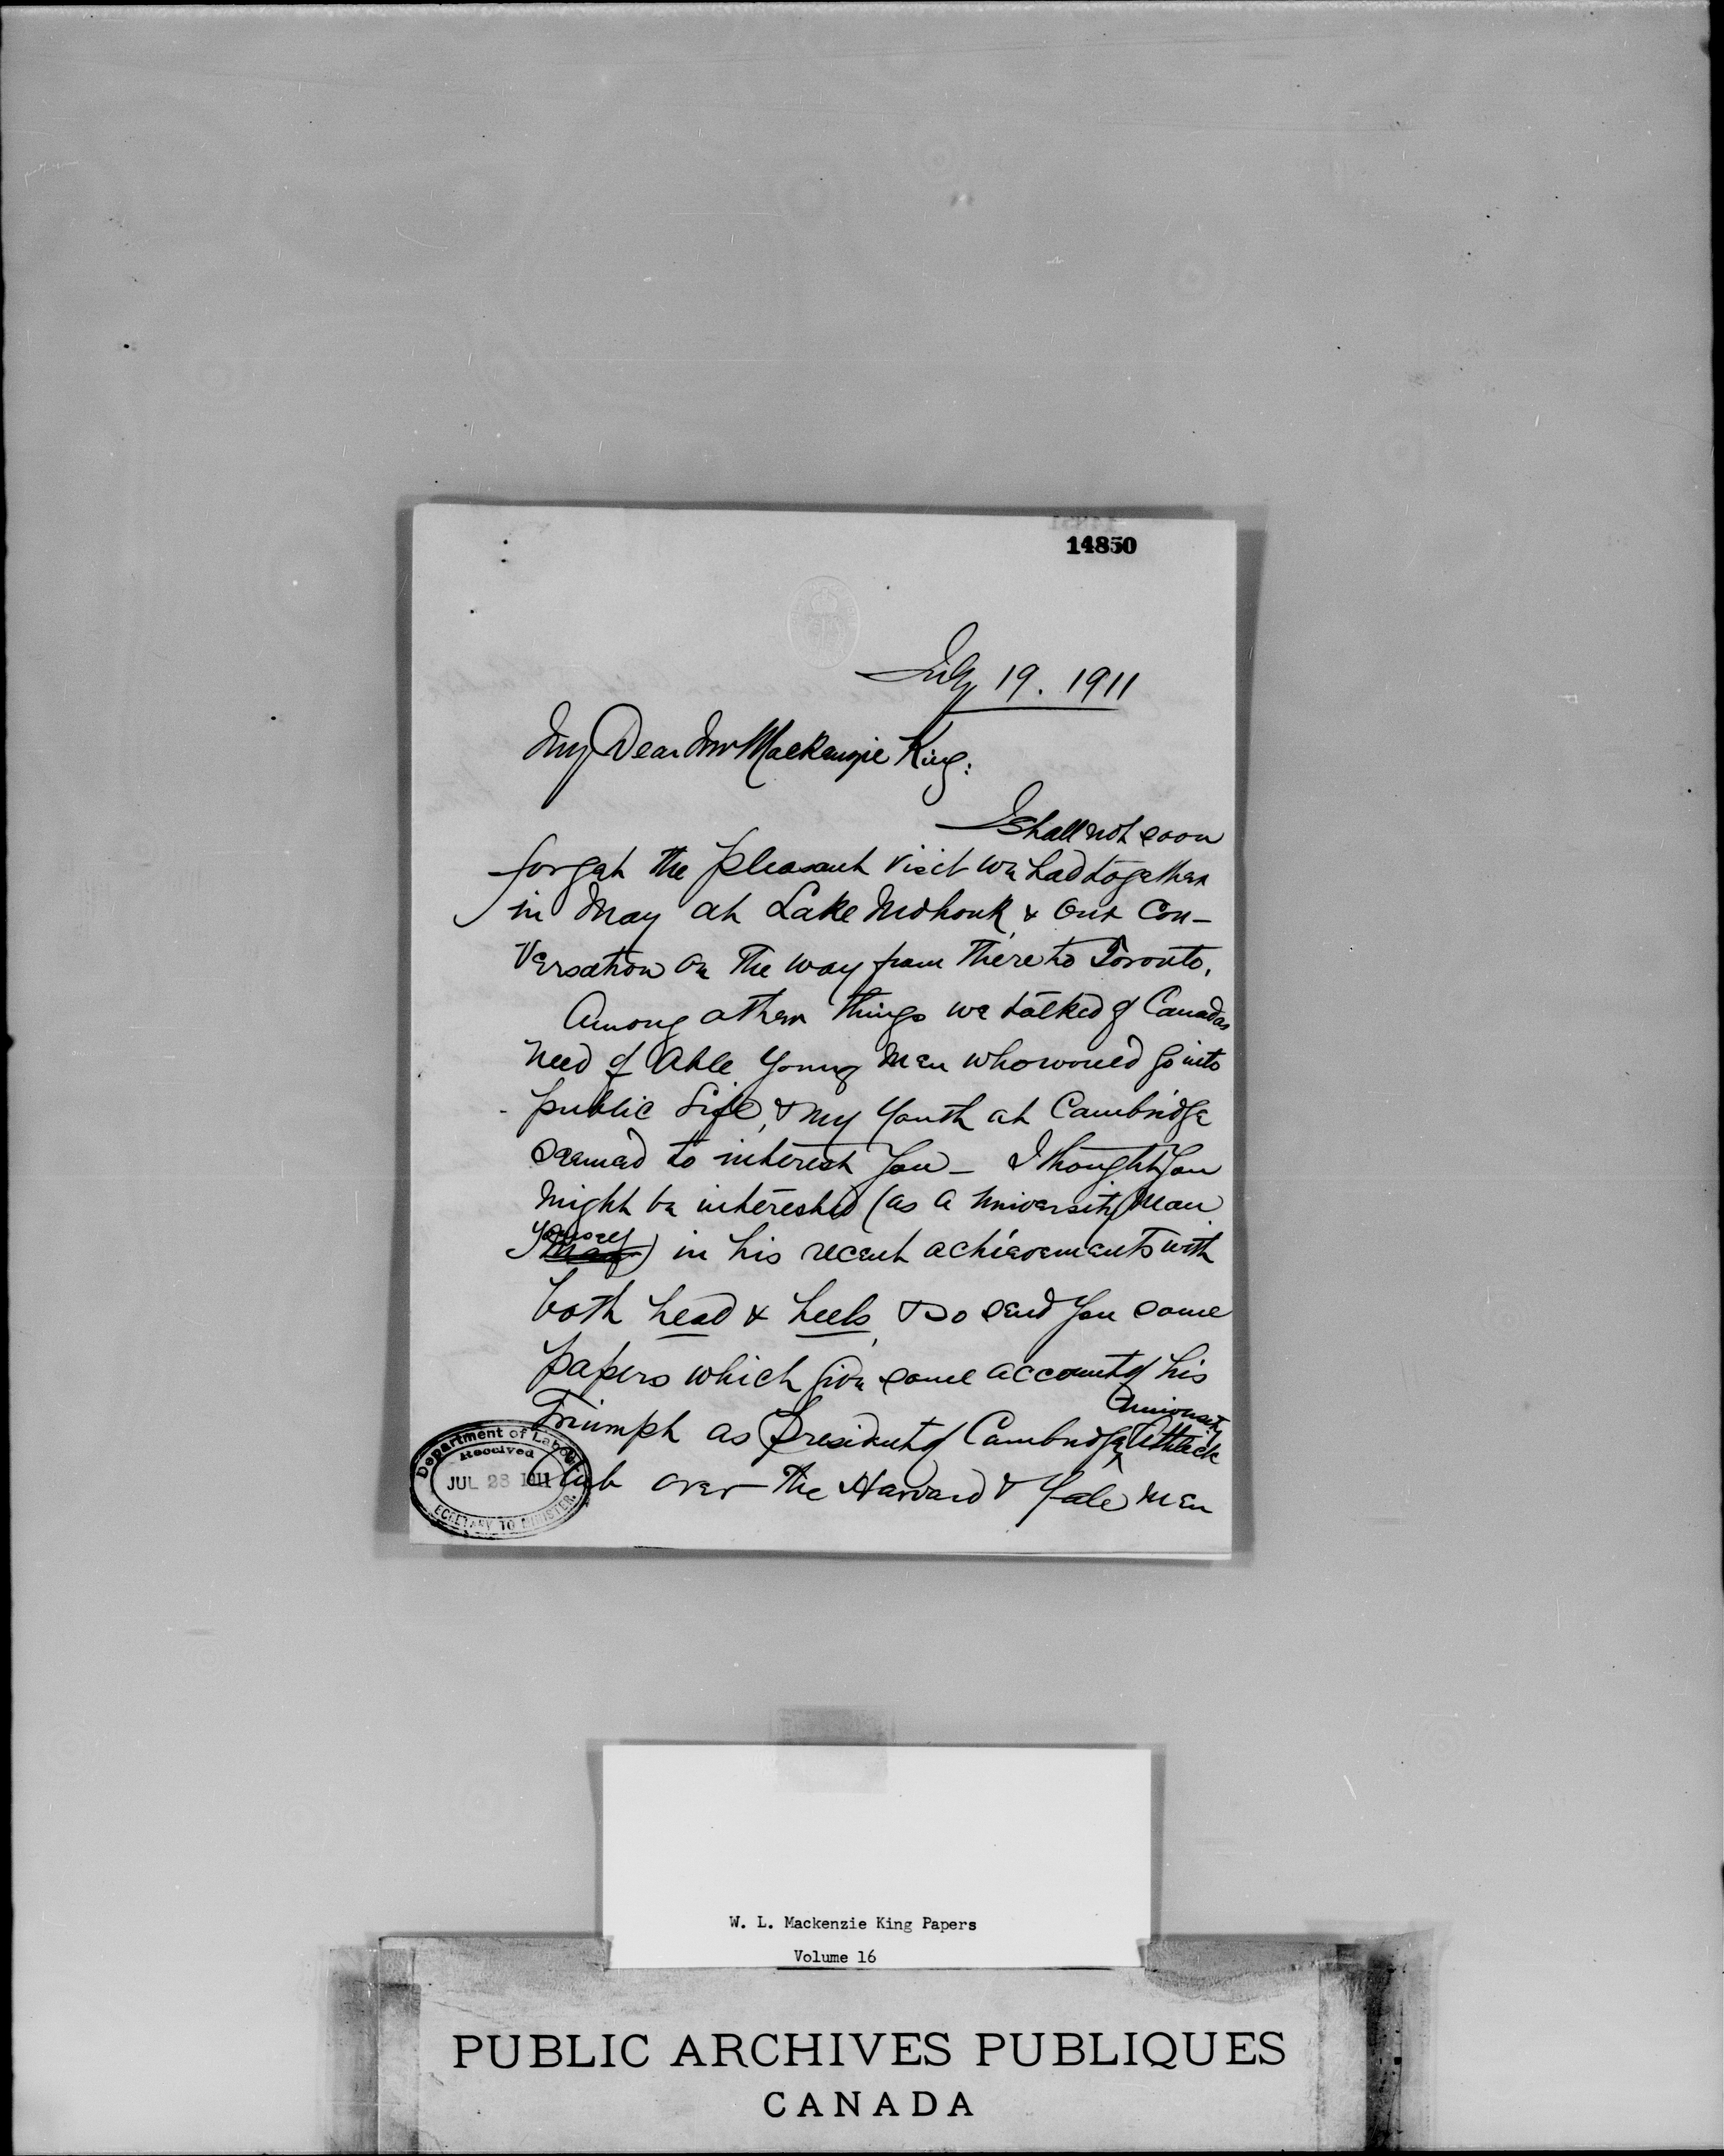 14850
July 19. 1911
My Dear Mr MacKenzie King:
I shall not soon
forget the pleasant visit we had together
in May at Lake Mohonk, & our con-
versation on the way from there to Toronto.
Among other things we talked of Canadas
need of able young men who would go into
public life, & my youth at Cambridge
seemed to interest you - I thought you
might be interested (as a University man
yourself) in his recent achievements with
both head & heels, & so send you some
papers which give some account of his
Triumph as President of Cambridge University Athletic
Club over the Harvard & Yale men
Department of Labour
Received
JUL 28 1911
SECRETARY TO MINISTER.
W. L. Mackenzie King Papers
Volume 16
PUBLIC ARCHIVES PUBLIQUES
CANADA